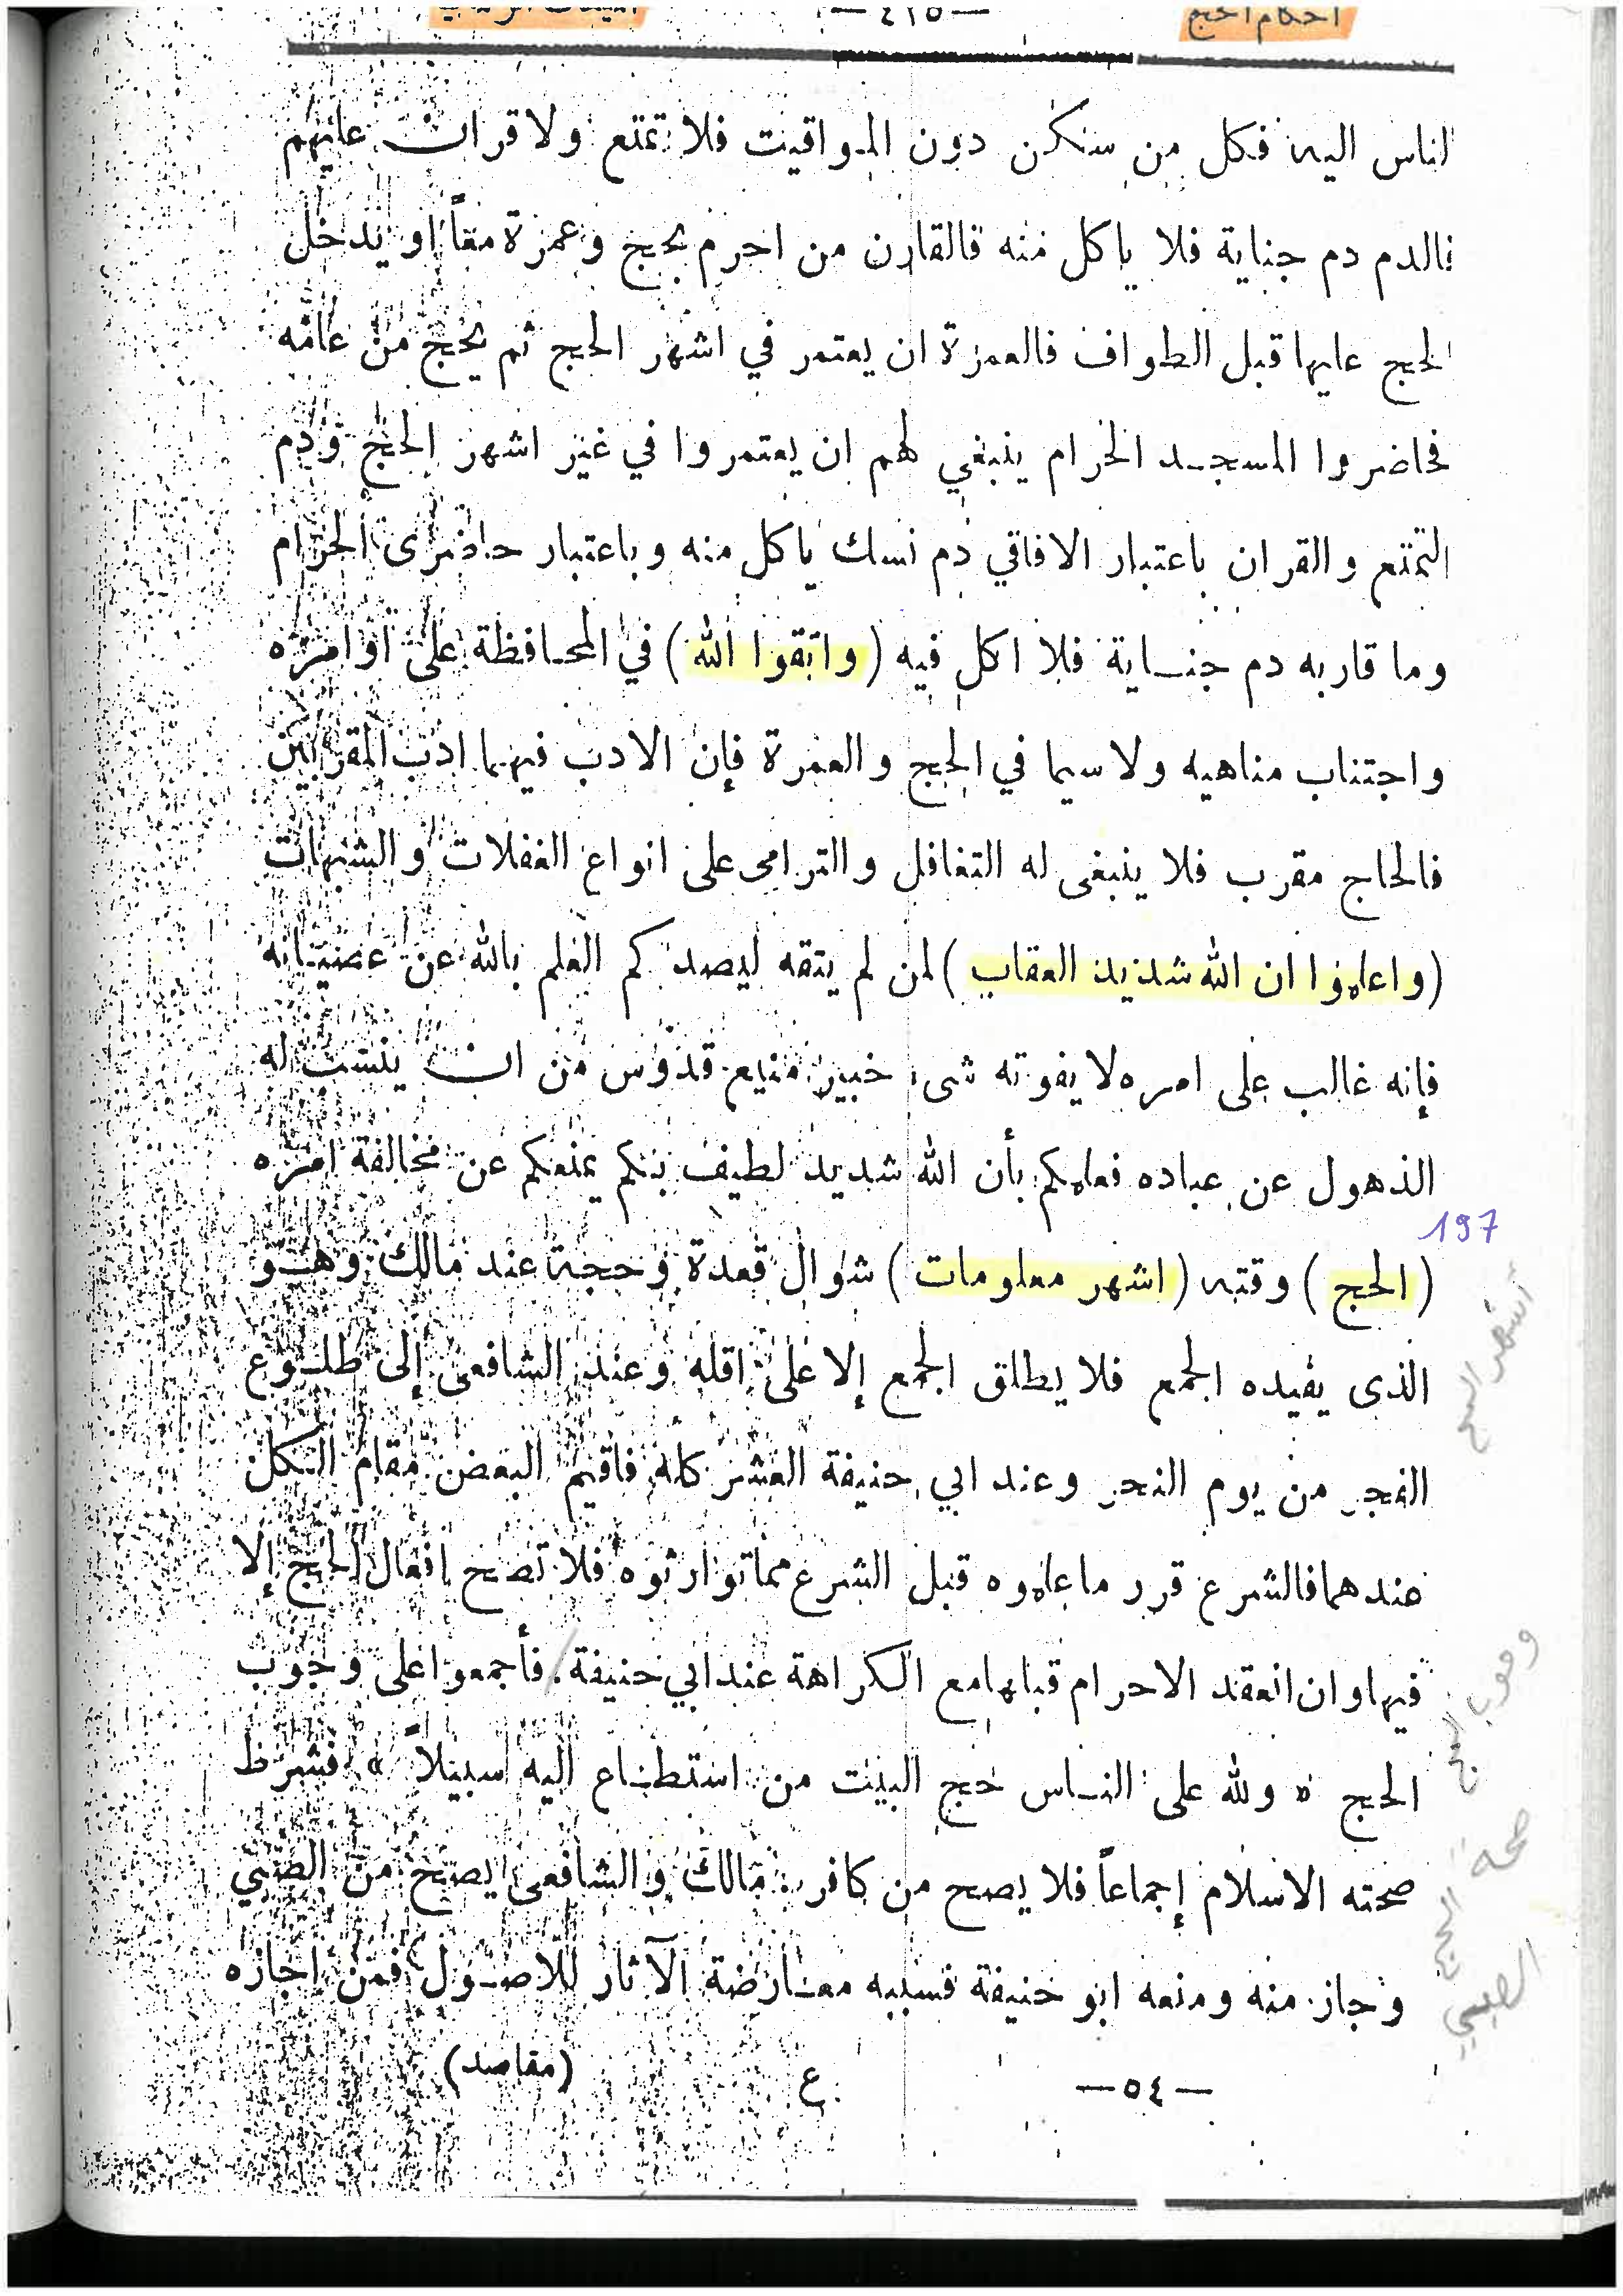 احكام الحج — ٤٢٥ —
الناس اليه فكل من سكن دون المواقيت فلا تمتع ولا قران عليهم
فالدم دم جناية فلا ياكل منه فالقارن من احرم بحج وعمرة معاً او يدخل
الحج عليها قبل الطواف فالعمرة ان يعتمر في اشهر الحج ثم يحج من عامه
فحاضروا المسجد الحرام ينبغي لهم ان يعتمروا في غير اشهر الحج ودم
التمتع والقران باعتبار الافاقي دم نسك ياكل منه وباعتبار حاضرى الحرام
وما قاربه دم جناية فلا اكل فيه (واتقوا الله) في المحافظة على اوامره
واجتناب مناهيه ولا سيما في الحج والعمرة فإن الادب فيهما ادب المقربين
فالحاج مقرب فلا ينبغى له التغافل والترامى على انواع الغفلات والشبهات
(واعلموا ان الله شديد العقاب) لمن لم يتقه ليصدكم العلم بالله عن عصيانه
فإنه غالب على امره لا يفوته شىء خبير منيع قدوس من ان ينسب له
الذهول عن عباده فعلمكم بأن الله شديد لطيف بكم يمنعكم عن مخالفة امره
197
(الحج) وقته (اشهر معلومات) شوال قعدة وحجة عند مالك وهو
الذى يفيده الجمع فلا يطلق الجمع إلا على اقله وعند الشافعى إلى طلوع
الفجر من يوم النحر وعند ابي حنيفة العشر كله فاقيم البعض مقام الكل
عندهما فالشرع قرر ما علموه قبل الشرع مما توارثوه فلا تصح افعال الحج إلا
فيها وان انعقد الاحرام قبلها مع الكراهة عند ابي حنيفة. فأجمعوا على وجوب
وجوب الحج
الحج « ولله على الناس حج البيت من استطاع اليه سبيلاً » فشرط
صحته الاسلام إجماعاً فلا يصح من كافر : مالك والشافعى يصح من الصبي
صحة الحج الصبي
وجاز منه ومنعه ابو حنيفة فسببه معارضة الآثار للاصول فمن اجازه
— ٥٤ — ع (مقاصد)